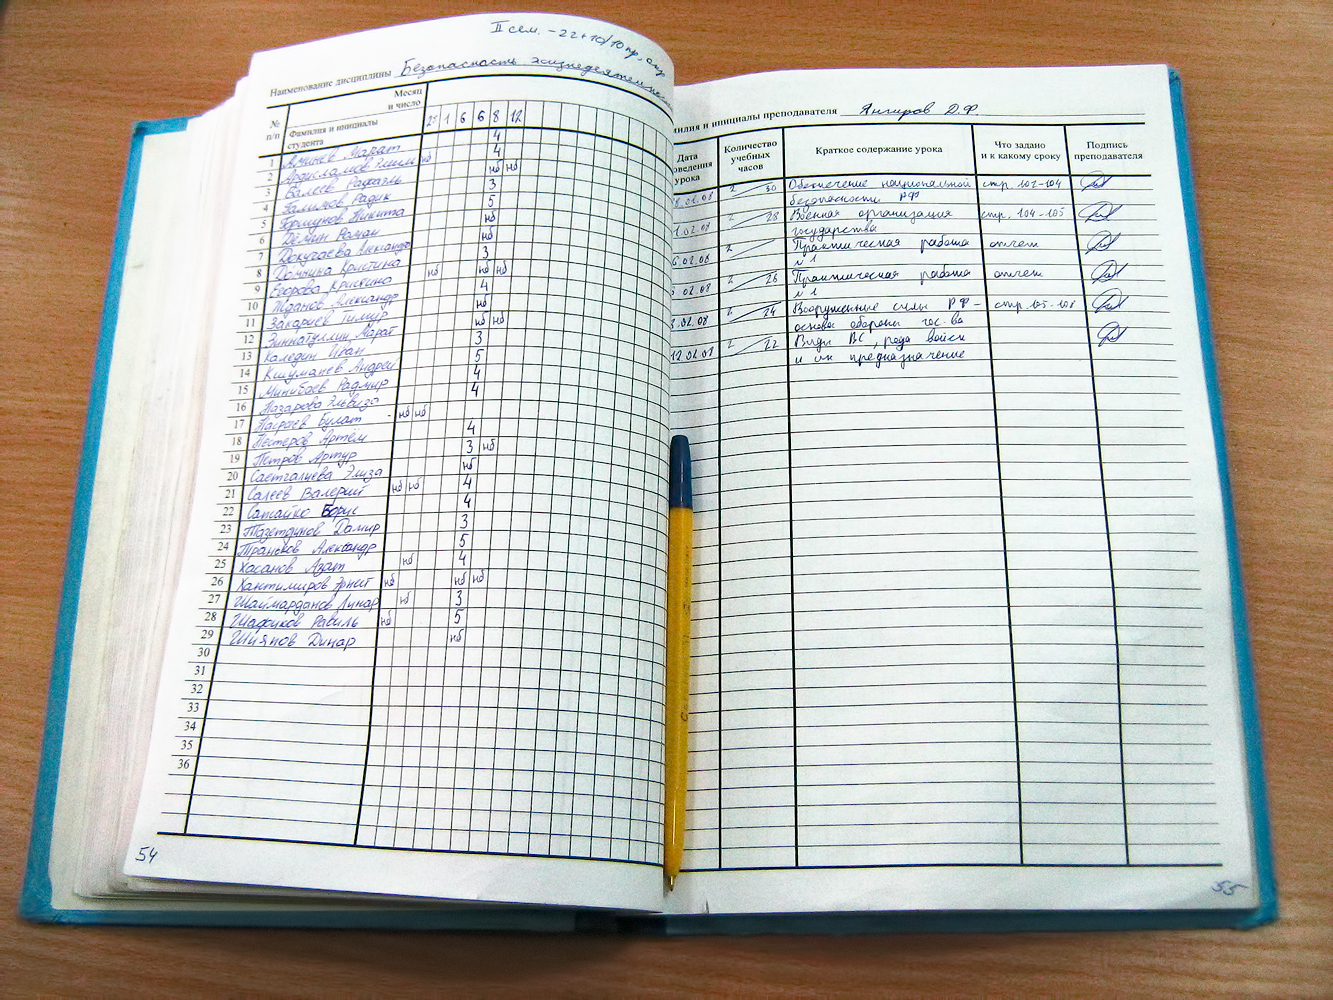 II сем. – 22+10/10 пр.
Наименование дисциплины Безопасность жизнедеятельности
№ п/п
Фамилия и инициалы студента
Месяц и число
27 1 6 6 8 12
1 Аминев Марат 4
2 Арасламов нб 4
3 Валеев Рафаэль нб нб
4 Галимов Радик 3
5 Горшунов Никита 5
6 Дёмин Роман нб
7 Докучаева Александра нб
8 Домнина Кристина 3
9 Егорова Кристина нб нб нб
10 Жданов Александр 4
11 Закариев Тимур нб
12 Зиннатуллин Марат нб нб
13 Каледин Иван 3
14 Кшуманев Андрей 5
15 Минибаев Радмир 4
16 Назарова Эльвиза 4
17 Нагаев Булат - нб нб
18 Нестеров Артём 4
19 Петров Артур 3 нб
20 Саетгалиева Элиза нб
21 Салеев Валерий нб нб 4
22 Сатайко Борис 4
23 Тазетдинов Дамир 3
24 Траньков Александр 5
25 Хасанов Азат нб 4
26 Хантимиров Эрнст нб нб нб
27 Шаймарданов Линар нб 3
28 Шафиков Равиль нб 5
29 Шиянов Динар нб
30
31
32
33
34
35
36
54
милия и инициалы преподавателя Янгиров Д.Ф.
Дата
оведения
урока
Количество
учебных
часов
Краткое содержание урока
Что задано
и к какому сроку
Подпись
преподавателя
8.01.08 2 30 Обеспечение национальной стр. 102-104
безопасности РФ
1.02.08 2 28 Военная организация стр. 104-105
государства
6.02.08 2 Практическая работа отчет
№1
6.02.08 2 26 Практическая работа отчет
№1
8.02.08 2 24 Вооруженные силы РФ – стр. 105-108
основа обороны гос-ва
12.02.08 2 22 Виды ВС, рода войск
и их предназначение
55